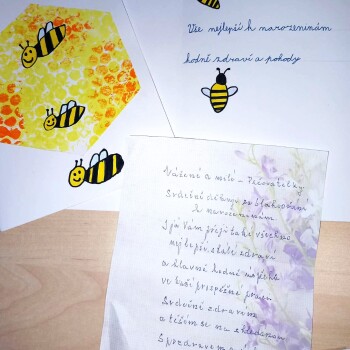 Vše nejlepší k narozeninám
hodně zdraví a pohody
Vážené a milé – Pečovatelky
Srdečně děkuji za blahopřání
k narozeninám
I já Vám přeji také všechno
nejlepší stálé zdraví
a hlavně hodně úspěchů
ve Vaší prospěšné práci
Srdečně zdravím
a těším se na shledanou
S pozdravem